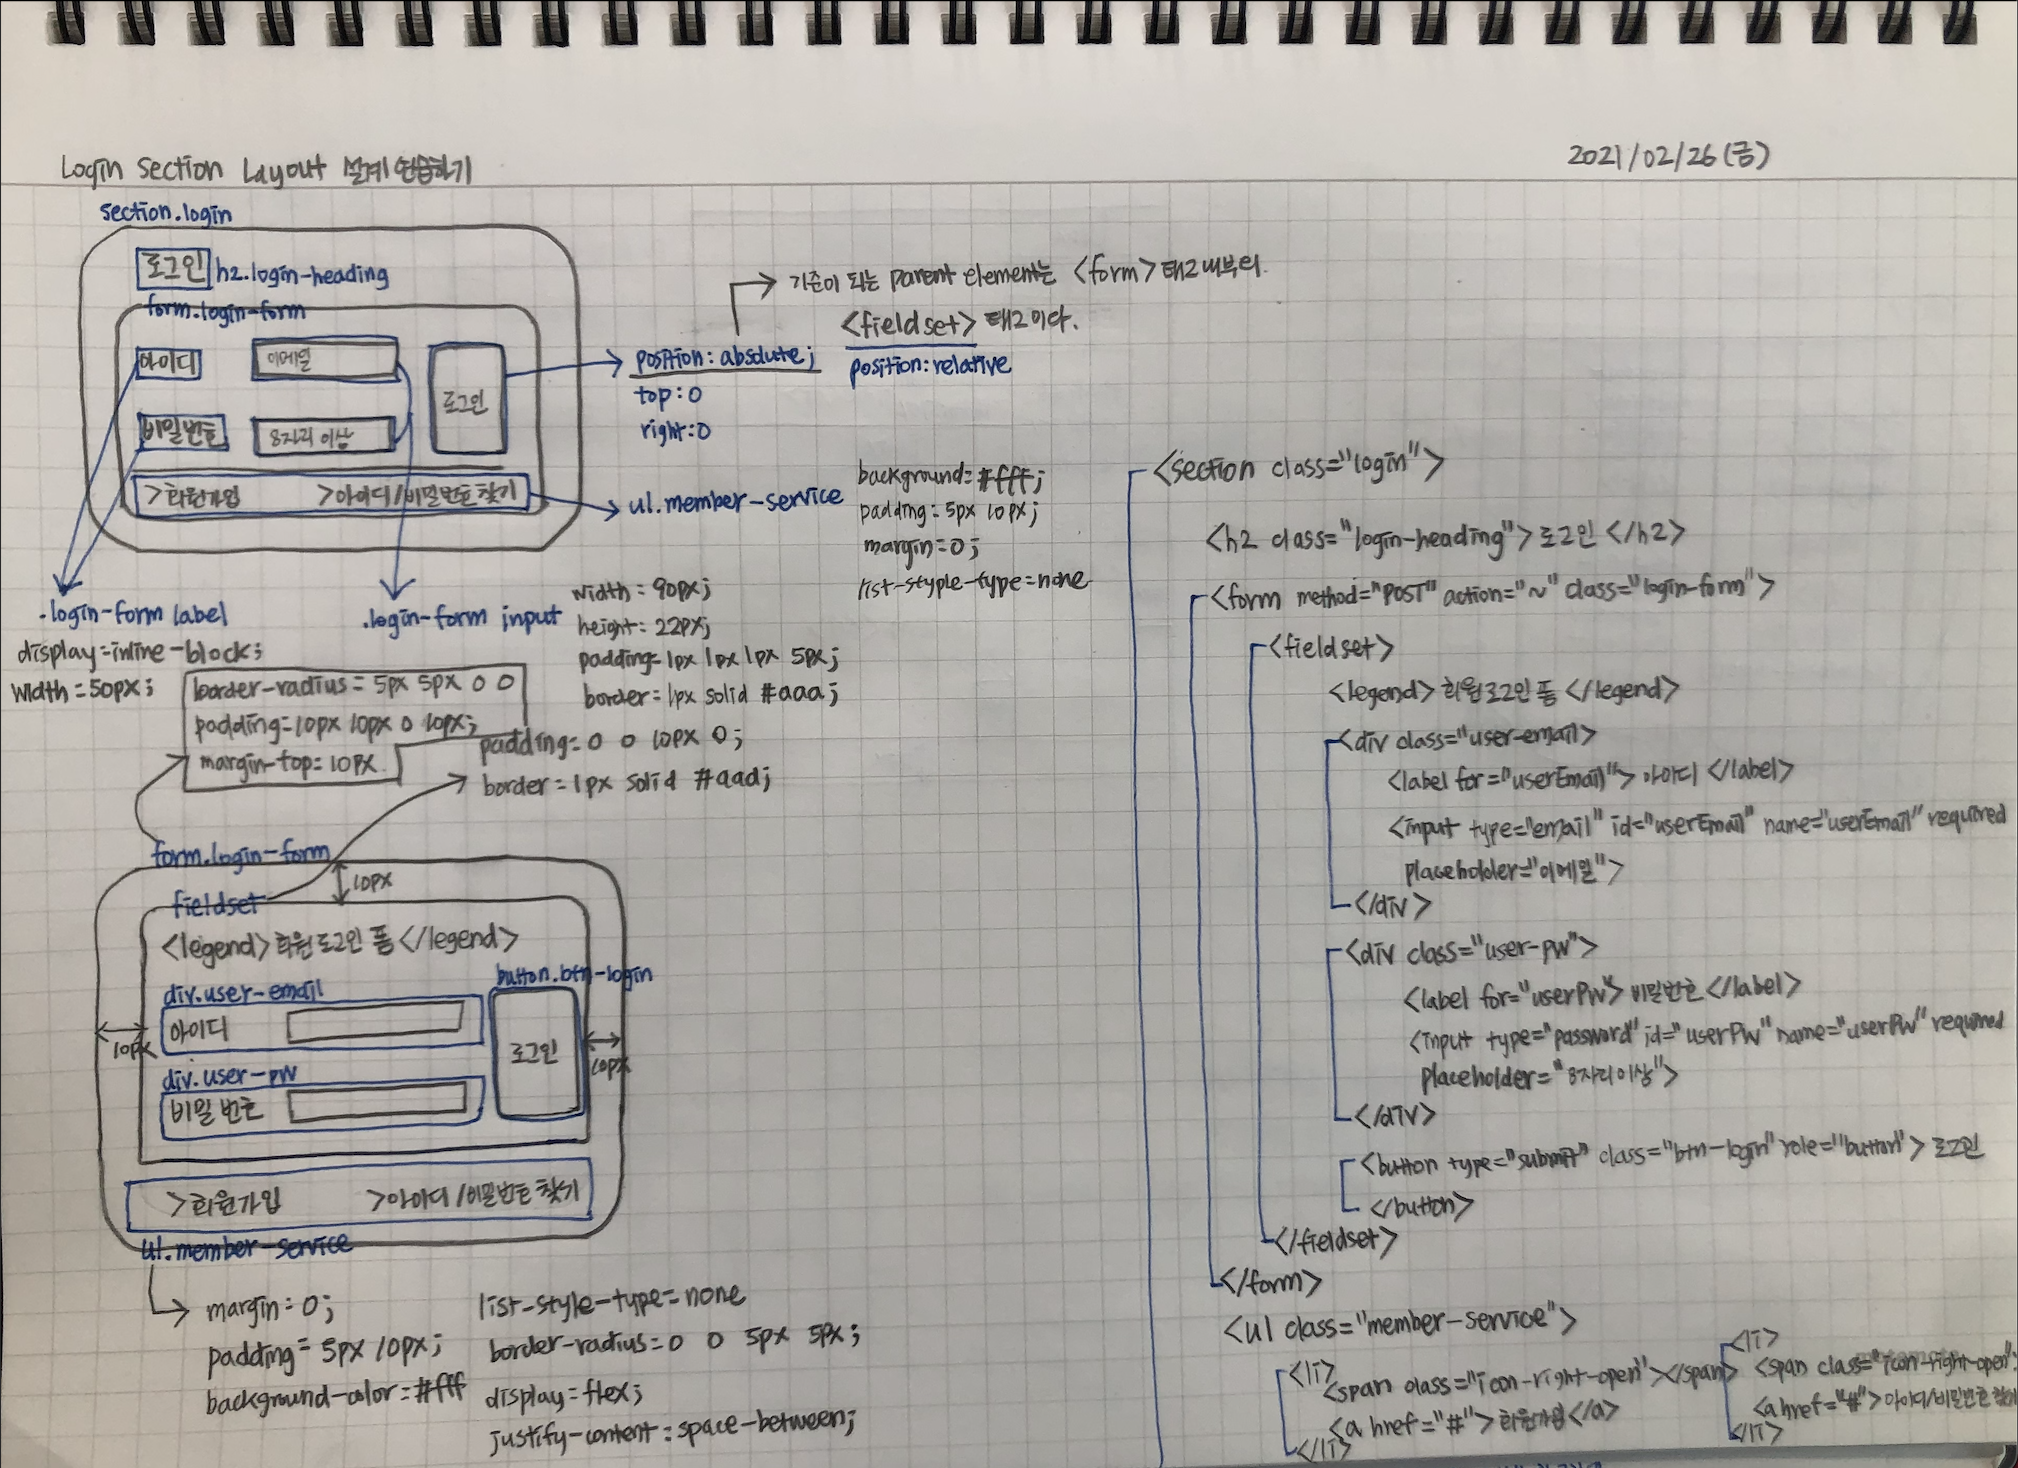 Login Section Layout 설계 연습하기
2021/02/26(금)
section.login
로그인 h2.login-heading
form.login-form
아이디
이메일
로그인
비밀번호
8자리 이상
>회원가입 >아이디/비밀번호 찾기
기준이 되는 parent element는 <form> 태그 내부의
<fieldset> 태그이다.
position:relative
position: absolute;
top:0
right:0
ul.member-service
background= #fff;
padding= 5px 10px;
margin=0;
list-styple-type=none
.login-form label
display=inline-block;
width=50px;
.login-form input
width= 90px;
height: 22px;
padding=1px 1px 1px 5px;
border=1px solid #aaa;
border-radius= 5px 5px 0 0
padding=10px 10px 0 10px;
margin-top=10px
padding= 0 0 10px 0;
border=1px solid #aad;
form.login-form
10px
fieldset
<legend>회원로그인 폼</legend>
button.btn-login
div.user-email
아이디
로그인
10px
10px
div.user-pw
비밀 번호
>회원가입 >아이디/비밀번호 찾기
ul.member-service
margin=0;
padding= 5px 10px;
background-color=#fff
list-style-type=none
border-radius=0 0 5px 5px;
display=flex;
justify-content:space-between;
<section class="login">
<h2 class="login-heading">로그인</h2>
<form method="POST" action="~" class="login-form">
<fieldset>
<legend>회원로그인 폼</legend>
<div class="user-email>
<label for="userEmail">아이디</label>
<input type="email" id="userEmail" name="userEmail" required
placeholder="이메일">
</div>
<div class="user-pw">
<label for="userPW>비밀번호</label>
<input type="password" id="userPW" name="userPW" required
placeholder="8자리 이상">
</div>
<button type="submit" class="btn-login" role="button">로그인
</button>
</fieldset>
</form>
<ul class="member-service">
<li>
<span class="icon-right-open"></span>
<a href="#">회원가입</a>
</li>
<li>
<span class="icon-right-open"
<a href="#">아이디/비밀번호 찾기
</li>